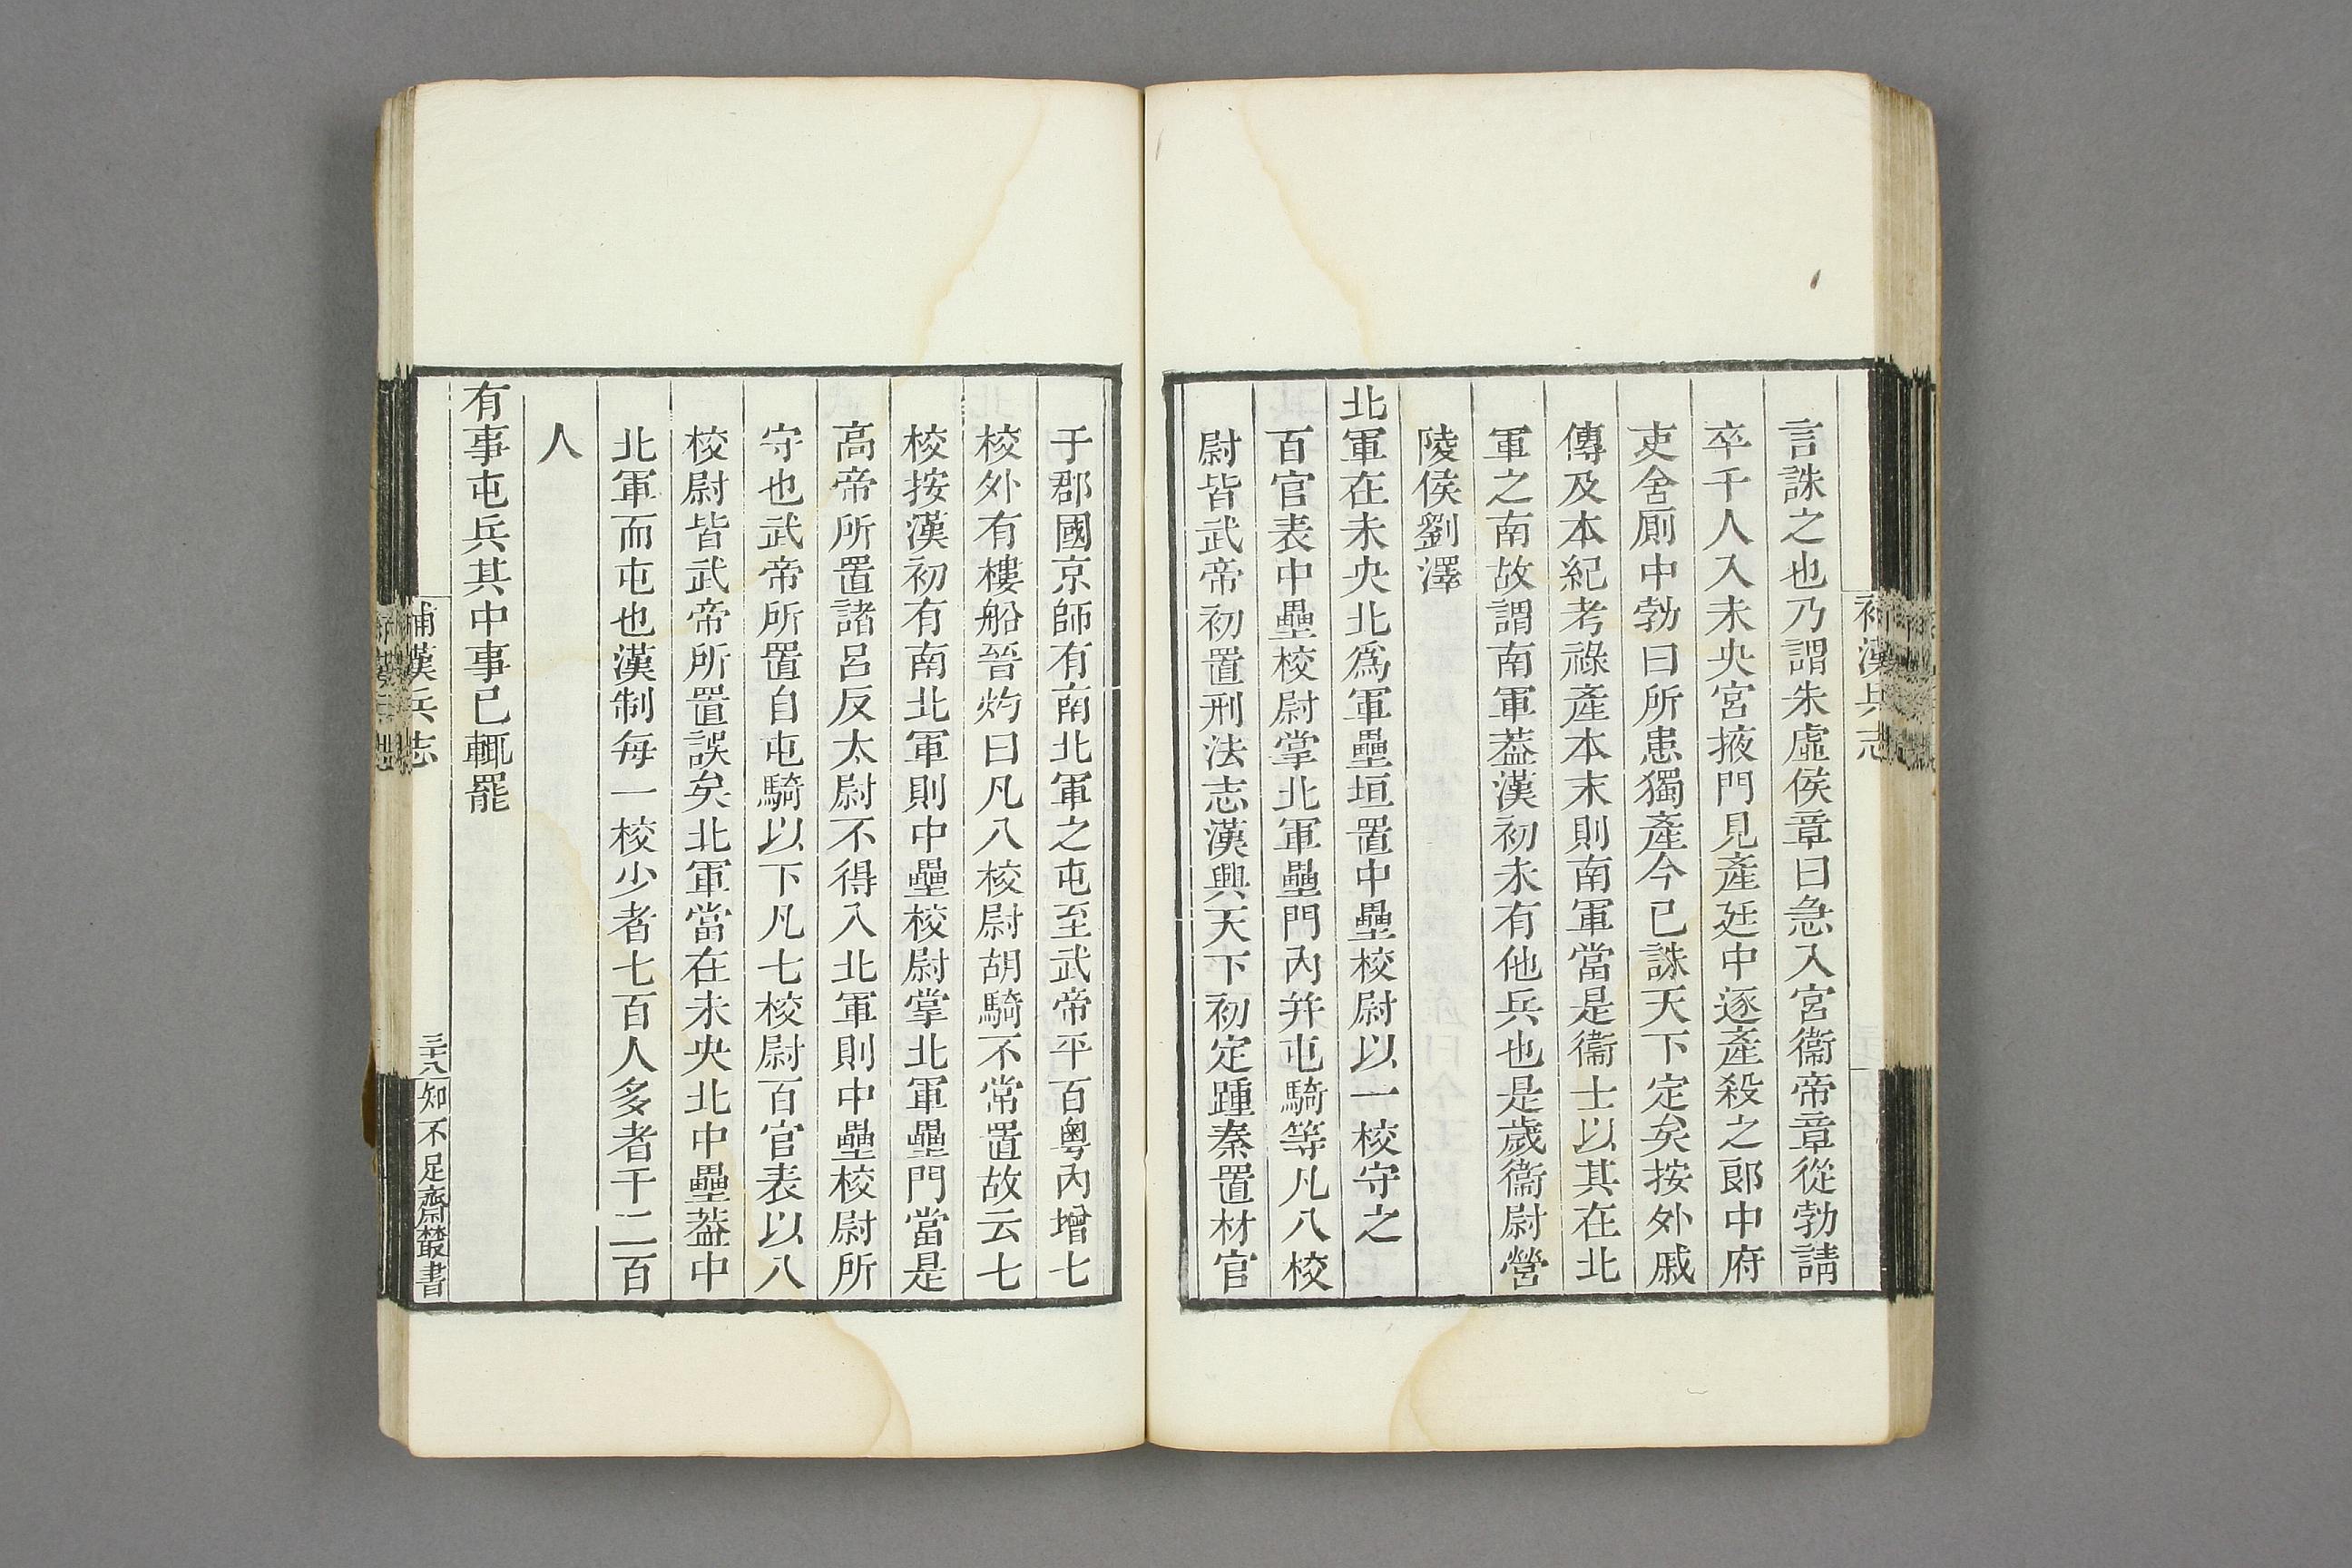 補漢兵志
言誅之也乃謂朱虛侯章曰急入宮衞帝章從勃請
卒千人入未央宮掖門見產廷中逐產殺之郎中府
吏舍厠中勃曰所患獨產今已誅天下定矣按外戚
傳及本紀考祿產本末則南軍當是衞士以其在北
軍之南故謂南軍葢漢初未有他兵也是歲衞尉營
陵侯劉澤
北軍在未央北爲軍壘垣置中壘校尉以一校守之
百官表中壘校尉掌北軍壘門內并屯騎等凡八校
尉皆武帝初置刑法志漢興天下初定踵秦置材官
于郡國京師有南北軍之屯至武帝平百粤內增七
校外有樓船晉灼曰凡八校尉胡騎不常置故云七
校按漢初有南北軍則中壘校尉掌北軍壘門當是
高帝所置諸呂反太尉不得入北軍則中壘校尉所
守也武帝所置自屯騎以下凡七校尉百官表以八
校尉皆武帝所置誤矣北軍當在未央北中壘葢中
北軍而屯也漢制每一校少者七百人多者千二百
人
有事屯兵其中事已輒罷
補漢兵志
三十八
知不足齋叢書